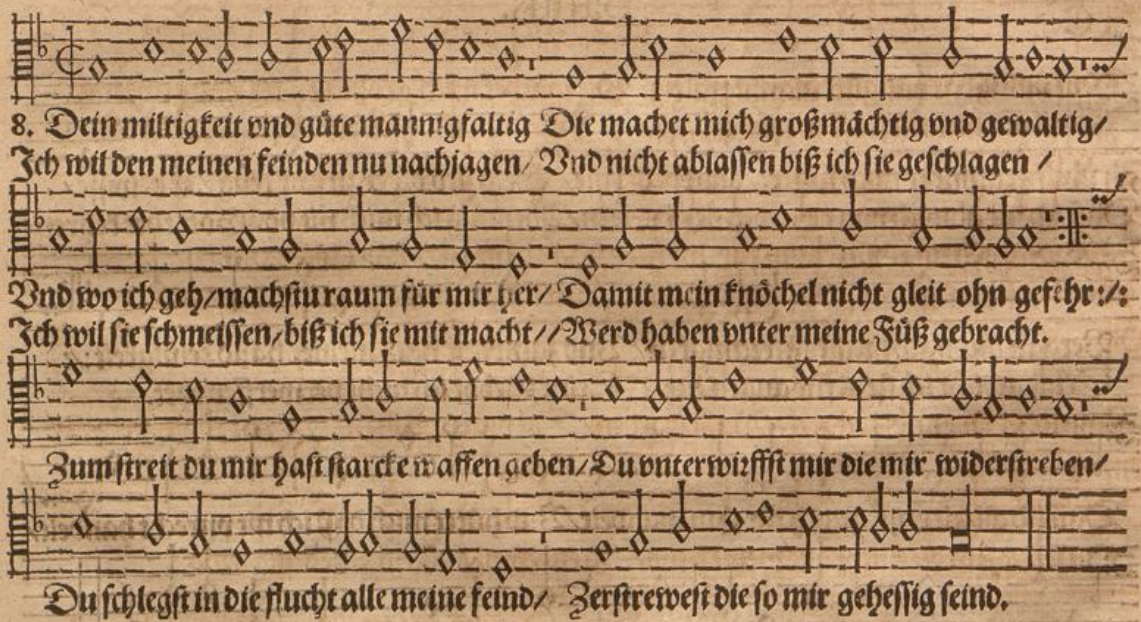 8. Dein miltigkeit vnd güte mannigfaltig Die machet mich großmächtig vnd gewaltig/
Ich wil den meinen feinden nu nachjagen/ Vnd nicht ablassen biß ich sie geschlagen /
Vnd wo ich geh/machstu raum für mir her/ Damit mein knöchel nicht gleit ohn gefehr:/:
Ich wil sie schmeissen/biß ich sie mit macht//Werd haben vnter meine Füß gebracht.
Zum streit du mir hast starcke waffen geben/Du vnterwirffst mir die mir widerstreben/
Du schlegst in die flucht alle meine feind/ Zerstrewest die so mir gehessig seind.